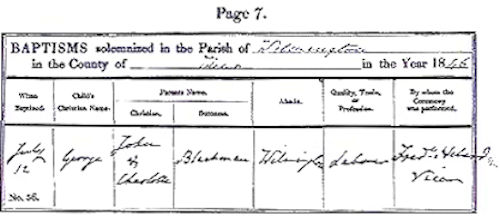 Page 7.
BAPTISMS solemnized in the Parish of Wilmington
in the County of in the Year 18
When Baptized. Child's Christian Name. Parents Name. Abode. Quality, Trade, or Profession. By whom the Ceremony was performed.
Christian. Surname.
July 12 George John & Charlotte Blackman Wilmington Labourer Fred.
Vicar
No. 56.